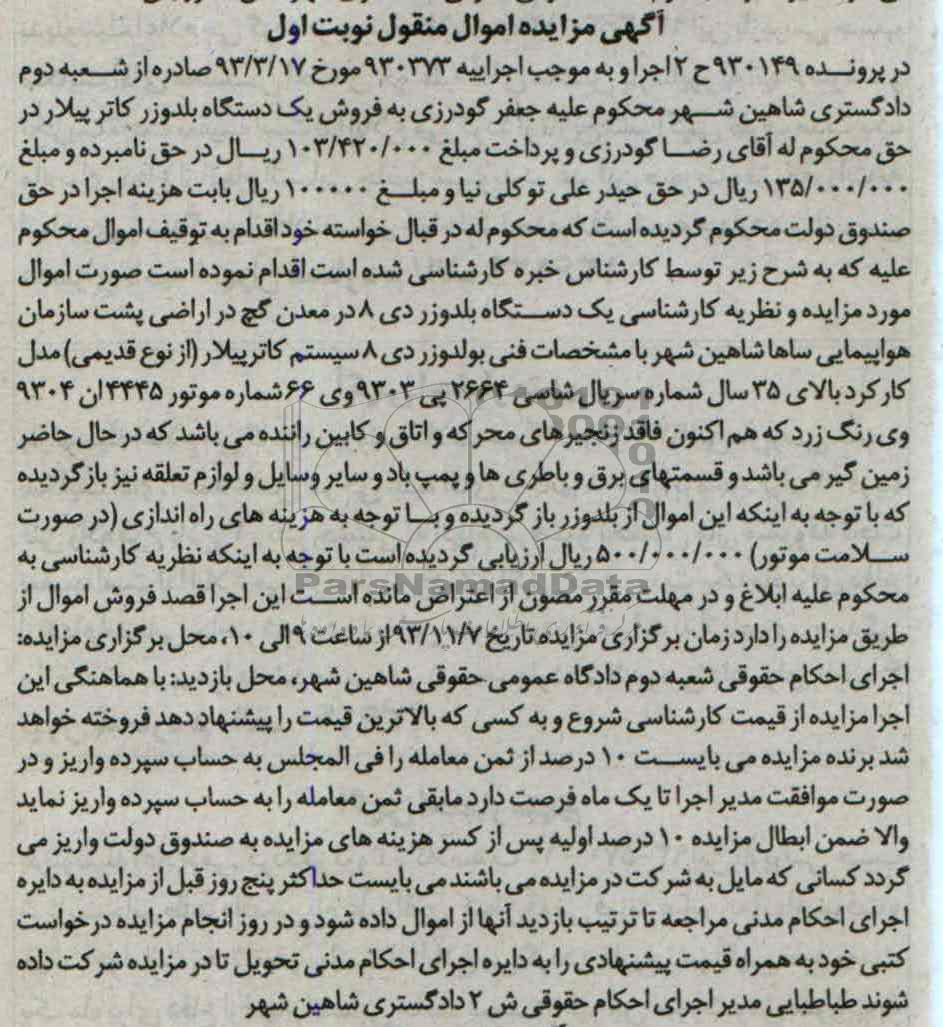 آگهی مزایده اموال منقول نوبت اول
در پرونـــده ۹۳۰۱۴۹ح ۲اجرا و به موجب اجراییه ۹۳۰۳۷۳ مورخ ۹۳/۳/۱۷ صادره از شـــعبه دوم
دادگستری شاهین شـــهر محکوم علیه جعفر گودرزی به فروش یک دستگاه بلدوزر کاتر پیلار در
حق محکوم له آقای رضـــا گودرزی و پرداخت مبلغ ۱۰۳/۴۲۰/۰۰۰ ریـــال در حق نامبرده و مبلغ
۱۳۵/۰۰۰/۰۰۰ ریال در حق حیدر علی توکلی نیا و مبلـــغ ۱۰۰۰۰۰ ریال بابت هزینه اجرا در حق
صندوق دولت محکوم گردیده است که محکوم له در قبال خواسته خود اقدام به توقیف اموال محکوم
علیه که به شرح زیر توسط کارشناس خبره کارشناسی شده است اقدام نموده است صورت اموال
مورد مزایده و نظریه کارشناسی یک دســـتگاه بلدوزر دی ۸ در معدن گچ در اراضی پشت سازمان
هواپیمایی ساها شاهین شهر با مشخصات فنی بولدوزر دی ۸ سیستم کاترپیلار (از نوع قدیمی) مدل
کارکرد بالای ۳۵ سال شماره سریال شاسی ۲۶۶۴ پی ۹۳۰۳ وی ۶۶ شماره موتور ۴۴۴۵ ان ۹۳۰۴
وی رنگ زرد که هم اکنون فاقد زنجیرهای محرکه و اتاق و کابین راننده می باشد که در حال حاضر
زمین گیر می باشد و قسمتهای برق و باطری ها و پمپ باد و سایر وسایل و لوازم تعلقه نیز باز گردیده
که با توجه به اینکه این اموال از بلدوزر باز گردیده و بـــا توجه به هزینه های راه اندازی (در صورت
ســـلامت موتور) ۵۰۰/۰۰۰/۰۰۰ ریال ارزیابی گردیده است با توجه به اینکه نظریه کارشناسی به
ParsNamadData
محکوم علیه ابلاغ و در مهلت مقرر مصون از اعتراض مانده اســـت این اجرا قصد فروش اموال از
طریق مزایده را دارد زمان برگزاری مزایده تاریخ ۹۳/۱۱/۷ از ساعت ۹ الی ۱۰، محل برگزاری مزایده:
اجرای احکام حقوقی شعبه دوم دادگاه عمومی حقوقی شاهین شهر، محل بازدید: با هماهنگی این
اجرا مزایده از قیمت کارشناسی شروع و به کسی که بالاترین قیمت را پیشنهاد دهد فروخته خواهد
شد برنده مزایده می بایســـت ۱۰ درصد از ثمن معامله را فی المجلس به حساب سپرده واریز و در
صورت موافقت مدیر اجرا تا یک ماه فرصت دارد مابقی ثمن معامله را به حساب سپرده واریز نماید
والا ضمن ابطال مزایده ۱۰ درصد اولیه پس از کسر هزینه های مزایده به صندوق دولت واریز می
گردد کسانی که مایل به شرکت در مزایده می باشند می بایست حداکثر پنج روز قبل از مزایده به دایره
اجرای احکام مدنی مراجعه تا ترتیب بازدید آنها از اموال داده شود و در روز انجام مزایده درخواست
کتبی خود به همراه قیمت پیشنهادی را به دایره اجرای احکام مدنی تحویل تا در مزایده شرکت داده
شوند طباطبایی مدیر اجرای احکام حقوقی ش ۲ دادگستری شاهین شهر